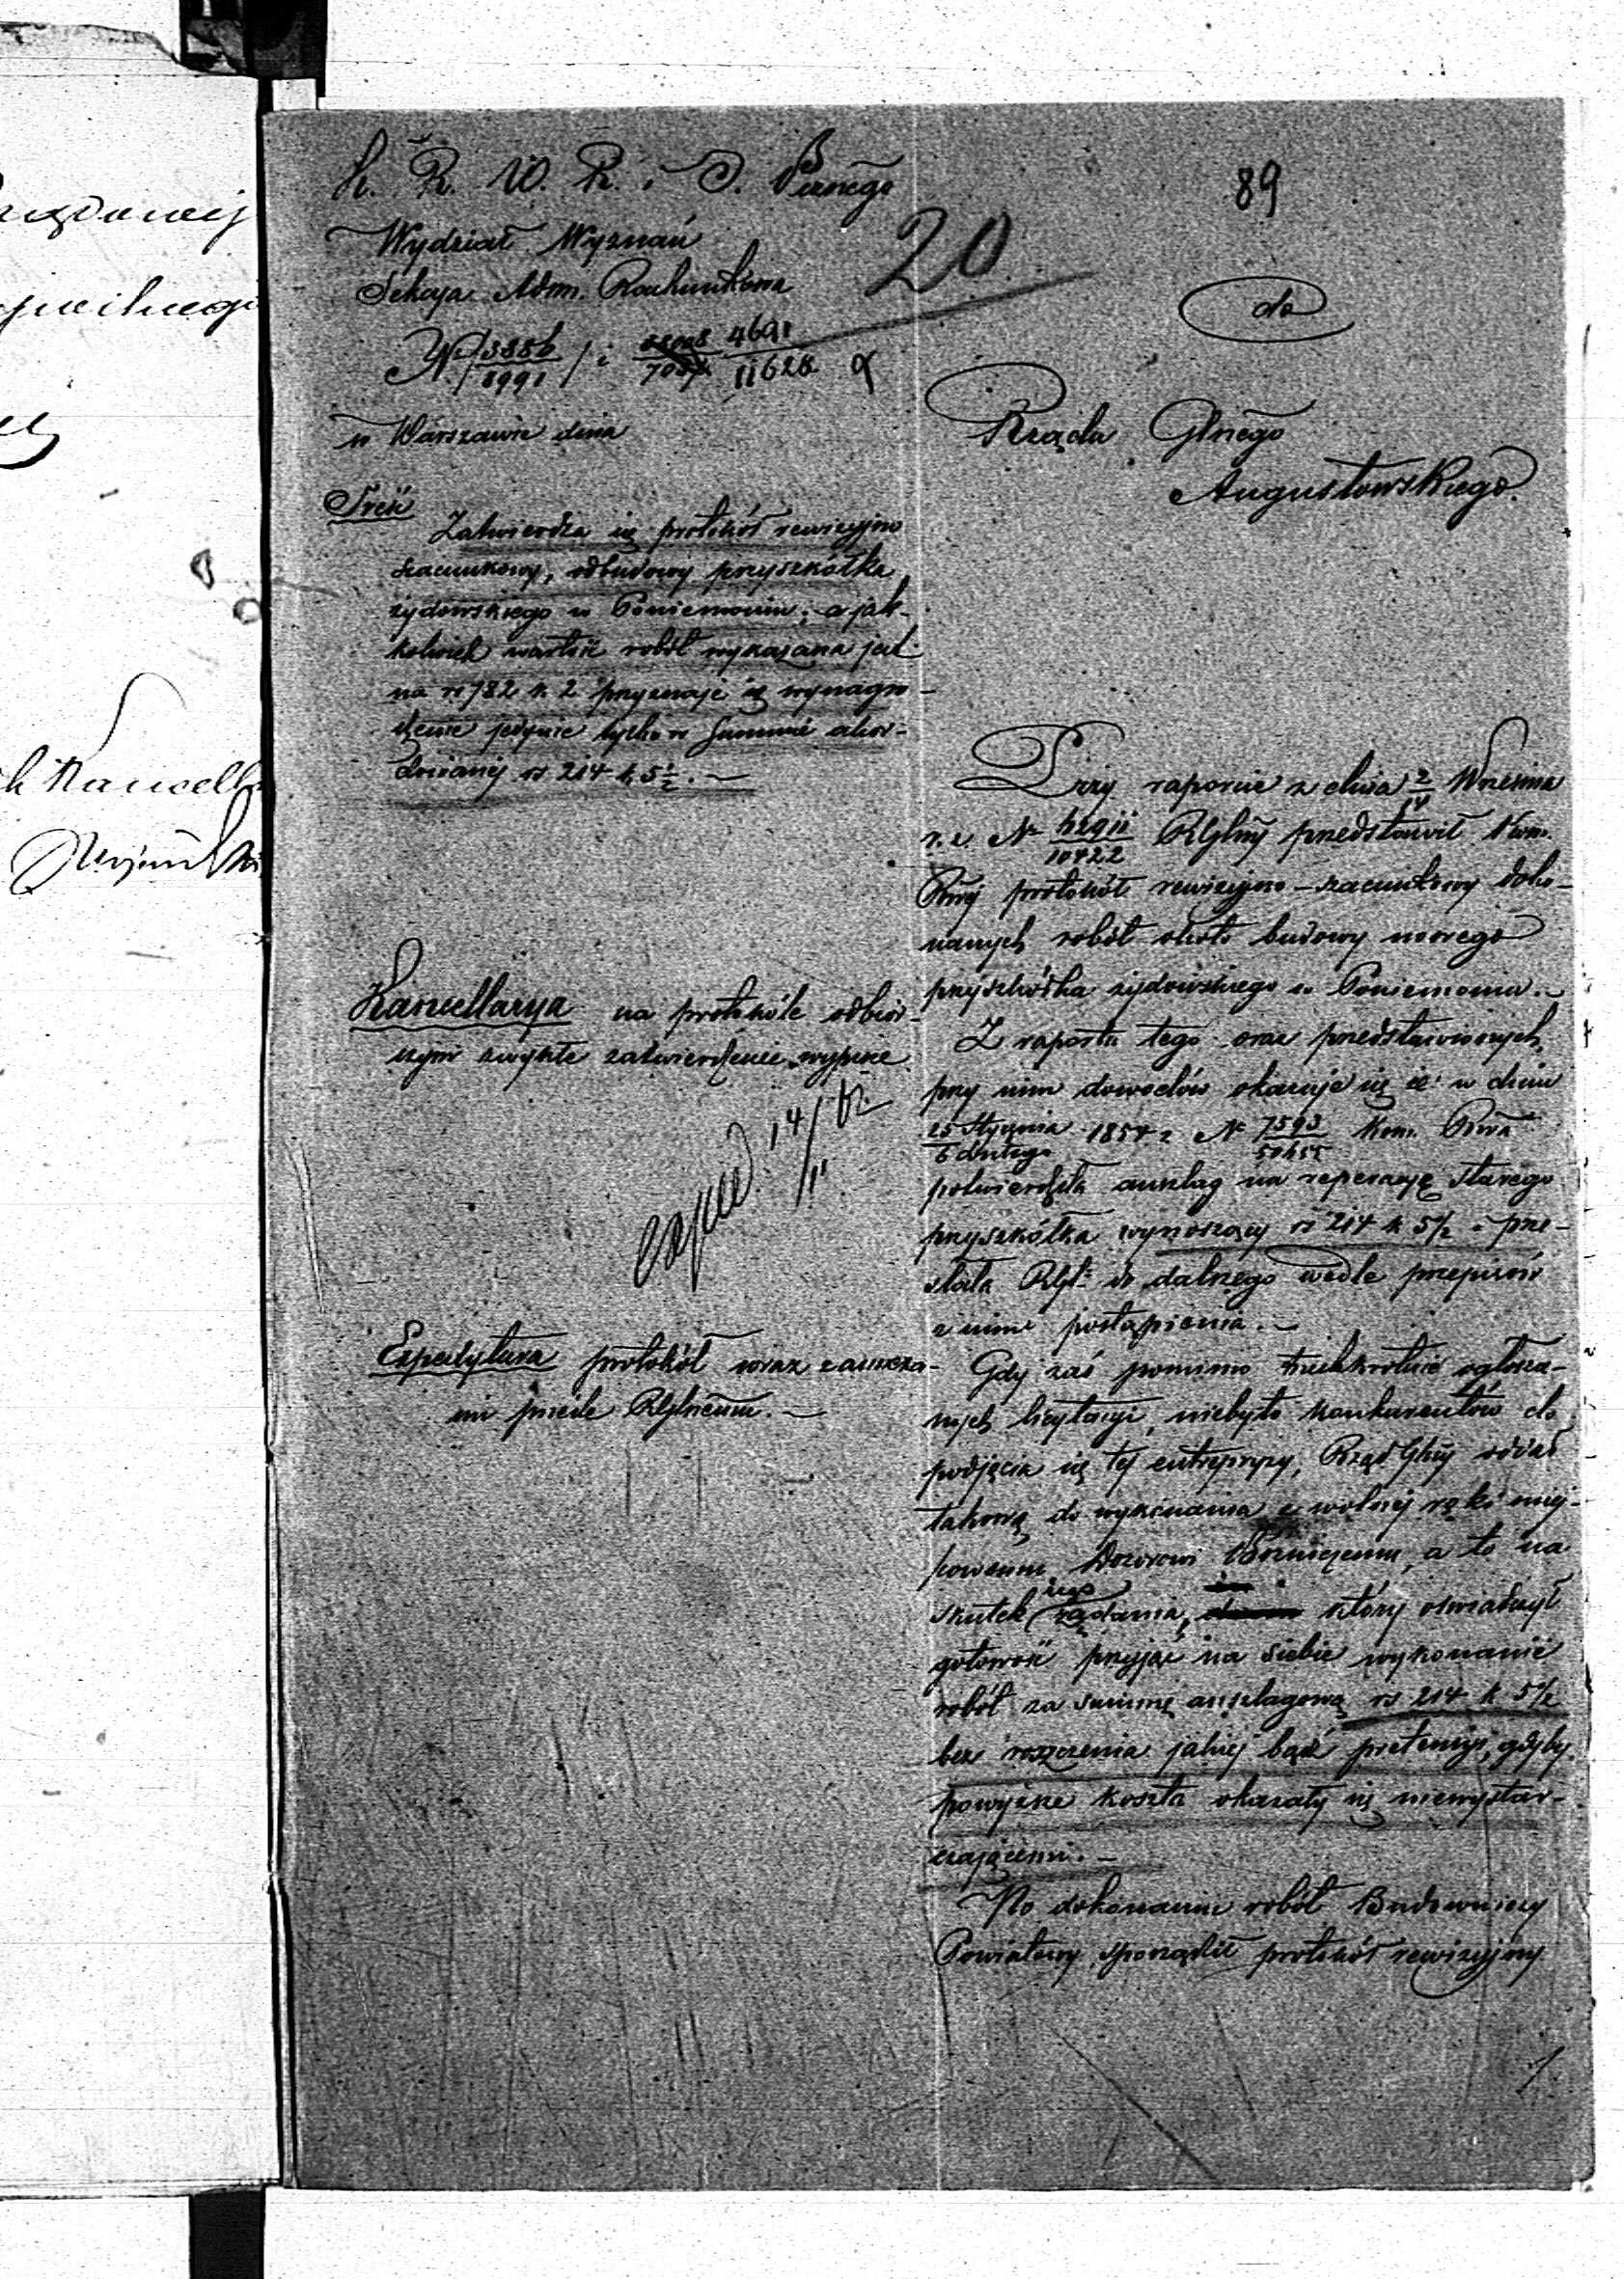 89
20
Wydział Wyznań
Sekcya Adm. Rachunkowa
4691
11628
w Warszawie dnia
do
Rządu Glnego
Augustowskiego.
Treść
Zatwierdza się protokół rewizyjno
szacunkowy, odbudowy przyszkółka
żydowskiego w Poniemoniu; a jak-
kolwiek wartość robót wykazana jest
na rs 782 k 2 przyznaje się wynagro-
dzenie jedynie tylko w Summie akor-
dowanej rs 214 k 5½. —
Kancellarya na protokóle odbior-
czym zwykłe zatwierdzenie wypisze
Expedytura protokół wraz z annexa-
mi prześle RGlnemu. —
Przy raporcie z dnia 2/14 Września
r. z. N 10422 RGlny przedstawił Kom.
Rwej protokół rewizyjno – szacunkowy doko-
nanych robót około budowy nowego
przyszkółka żydowskiego w Poniemoniu. –
Z raportu tego oraz przedstawionych
przy nim dowodów okazuje się iż w dniu
25 Stycznia
6 Lutego 1854 r N 7593 Kom. Rwa
potwierdziła anszlag na reperacyę starego
przyszkółka wynoszący rs 214 k 5½ i prze-
słała RGl: do dalszego wedle przepisów
z nim postąpienia. —
Gdy zaś pomimo trzechkrotnie ogłasza-
nych licytacyi, niebyło konkurentów do
podjęcia się tej entrepryzy, Rząd Glny oddał
takową do wykonania z wolnej ręki miej-
scowemu Dozorowi Bóżniczemu, a to na
skutek jego żądania, który oświadczył
gotowość przyjąć na siebie wykonanie
robót za summę anszlagową rs 214 k 5½
bez roszczenia jakiej bądź pretensyi, gdyby
powyższe koszta okazały się niewystar-
czającemi. —
Po dokonaniu robót Budowniczy
Powiatowy sporządził protokół rewizyjny